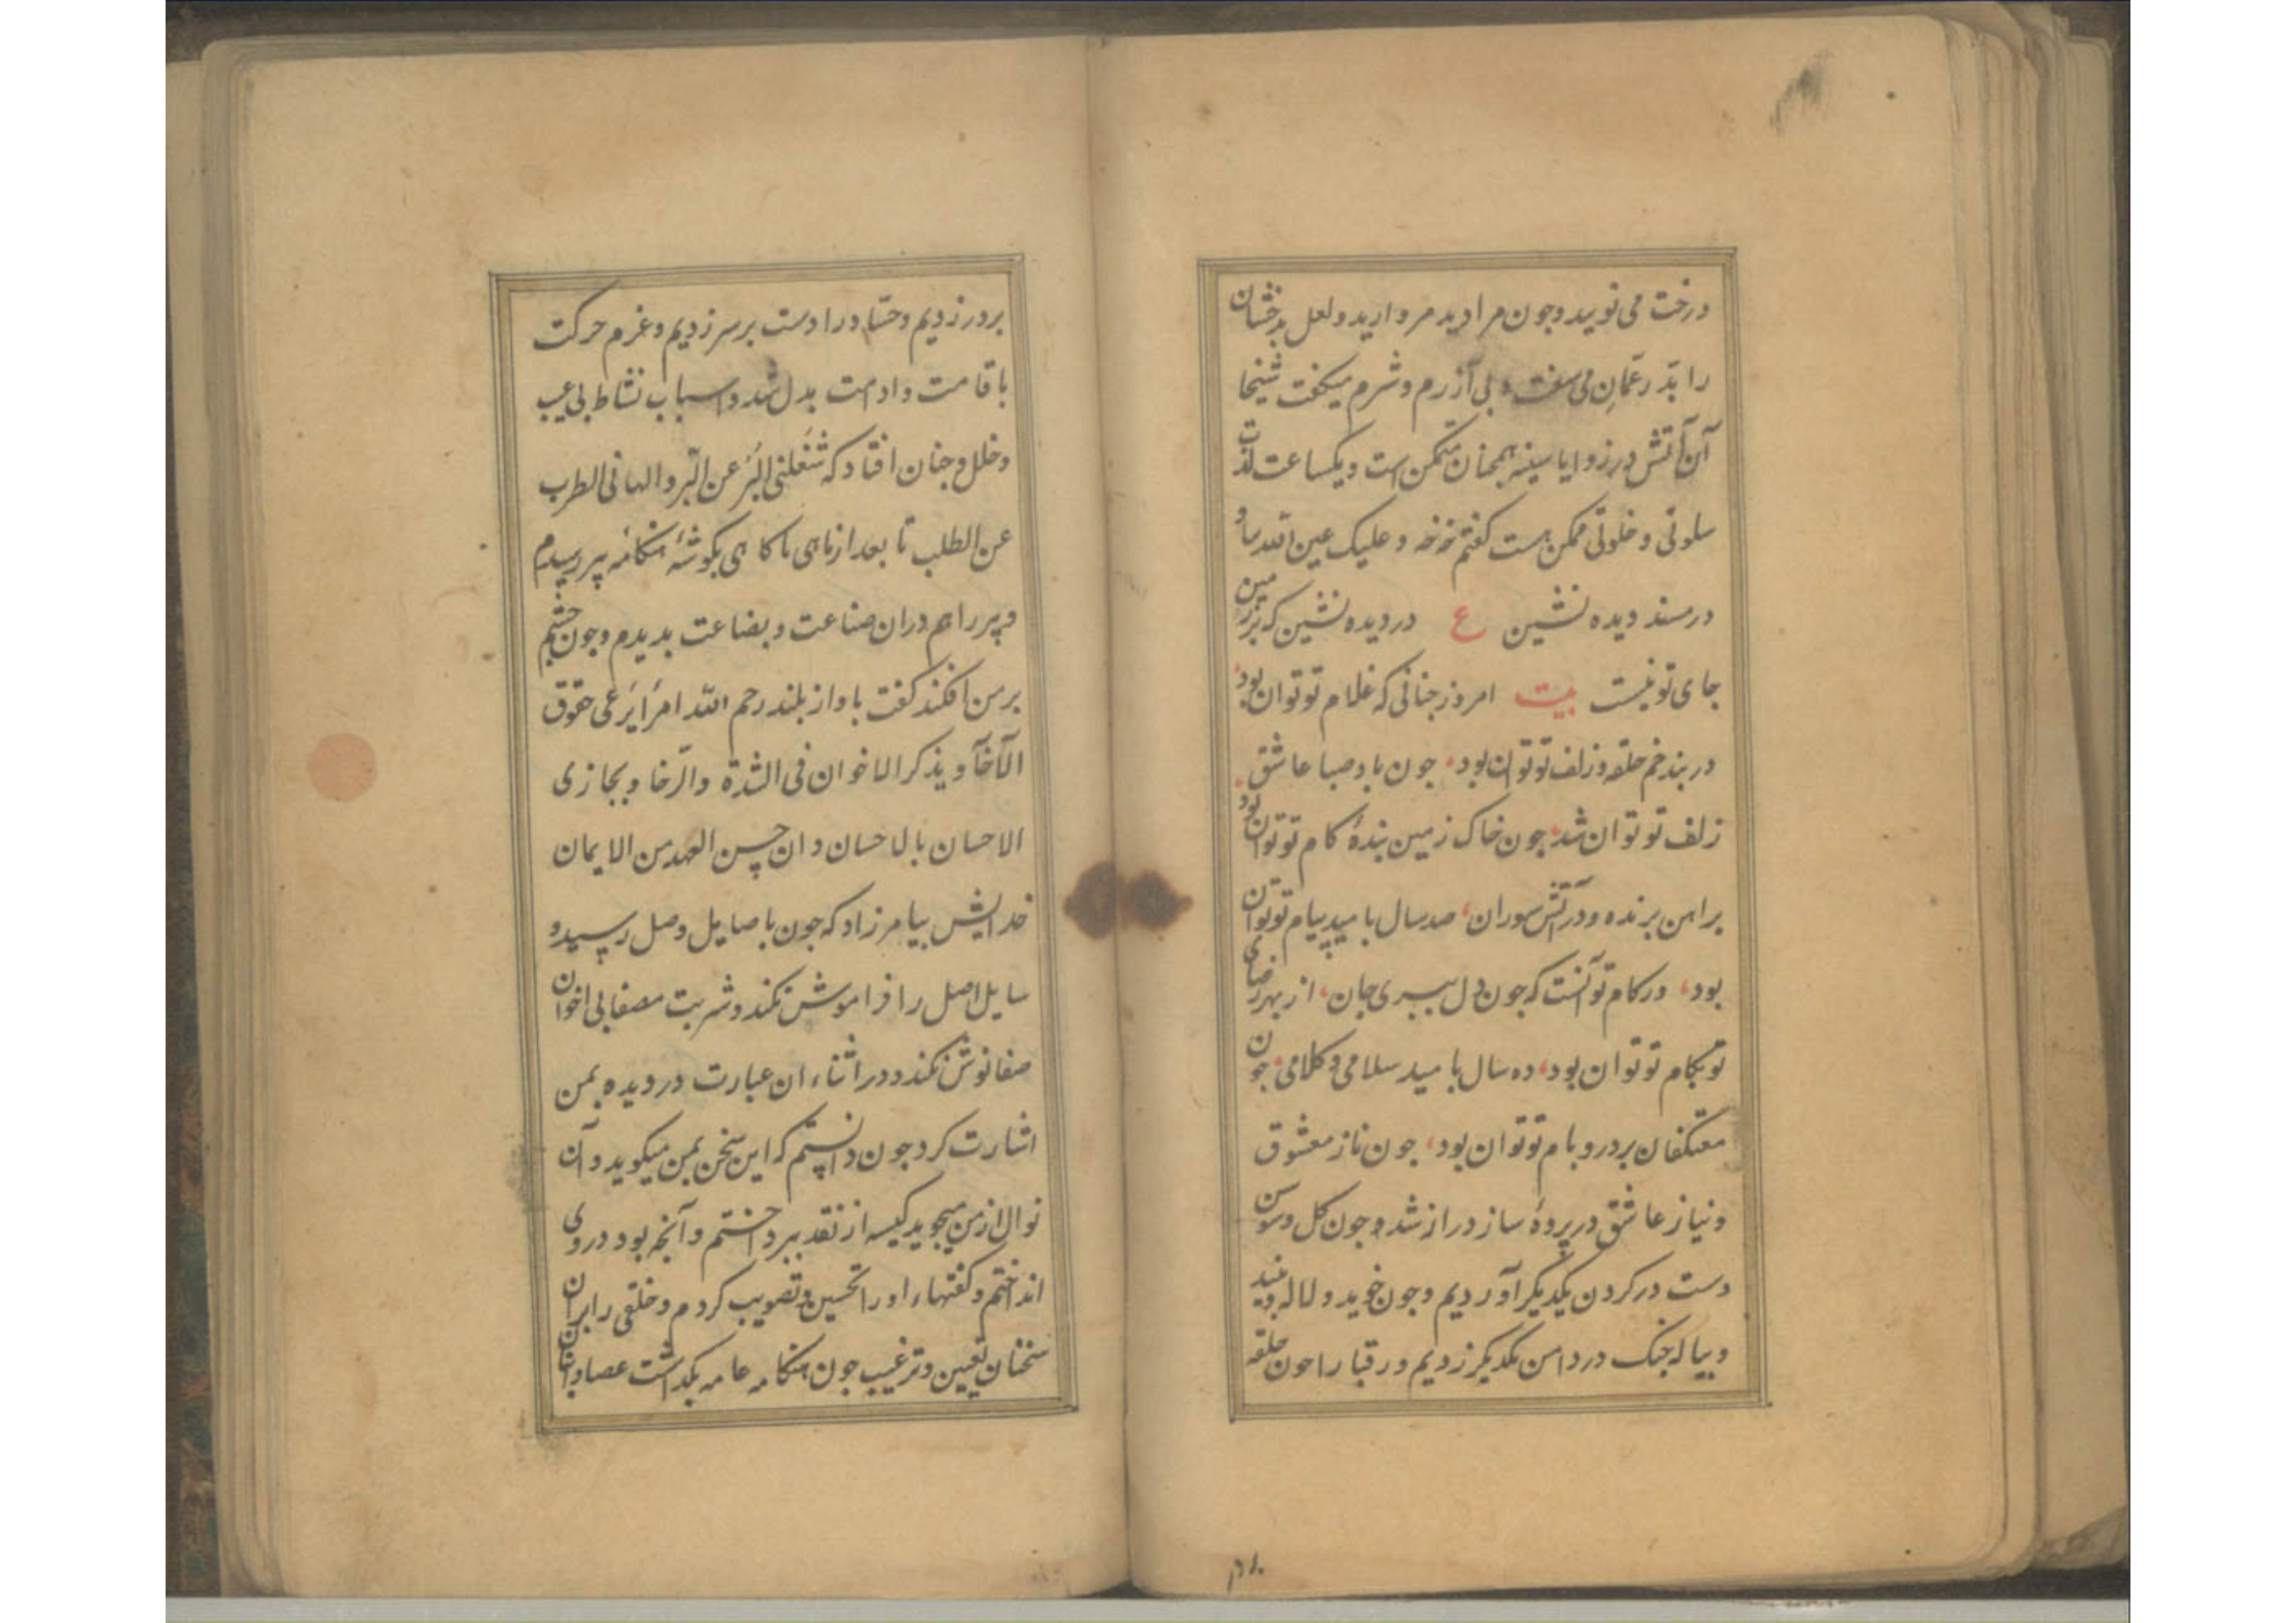 درخت می نویید وجون مرا دید مروارید و لعل بدخشان
را بدر عمان می سفت و بی آزرم و شرم میکفت شیخا
آن آتش در زوایا سینه همجنان متمکن است و یکساعت لذت
سلوتی و خلوتی ممکن هست کفتم خه خه و علیک عین الله بیا و
در مسند دیده نشین ع در دیده نشین که بر زمین
جای تو نیست بیت امروز جنانی که غلام تو توان بود
در بند خم حلقه و زلف تو توان بود، جون باد صبا عاشق
زلف تو توان شد، جون خاک زمین بندهٔ کام تو توان بود
بر اهن برنده و در آتش سوزان، صد سال بامید پیام تو توان
بود، در کام تو آنست که جون دل ببری جان، از بهر رضای
تو بکام تو توان بود، ده سال بامید سلامی و کلامی، جون
معتکفان بر در و بام تو توان بود، جون ناز معشوق
و نیاز عاشق در پردهٔ ساز دراز شد وجون کل و سوسن
دست در کردن یکدیکر آوردیم وجون خوید و لاله
و بیاله جنک در دامن یکدیکر زدیم و رقبا را جون حلقه
بر در زدیم و حساد را دست بر سر زدیم و عزم حرکت
باقامت و ادامت بدل شد و اسباب نشاط بی عیب
و خلل و جنان افتاد که شغلنی البر عن البر و الهانی الطرب
عن الطلب تا بعد از ماهی ناکاهی بکوشهٔ هنکامهٔ پیر رسیدم
و پیر را هم دران صناعت و بضاعت بدیدم وجون جشم
بر من افکند کفت باواز بلند رحم الله امرأ یرعی حقوق
الآخآ و یذکر الاخوان فی الشدة والرخا و یجازی
الاحسان بالاحسان و ان حسن العهد من الایمان
خدایش بیامرزاد که جون باصایل وصل رسید و
سایل اصل را فراموش نکند و شربت مصفا بی اخوان
صفا نوش نکند و در اثناء ان عبارت در دیده بمن
اشارت کرد جون دانستم که این سخن بمن میکوید و آن
نوال از من میجوید کیسه از نقد ببرداختم و آنجه بود در وی
انداختم و کفتهاء او را تحسین و تصویب کردم و خلقی را بران
سخنان تعیین و ترغیب جون هنکامه عامه بکذاشت عصا و انبان